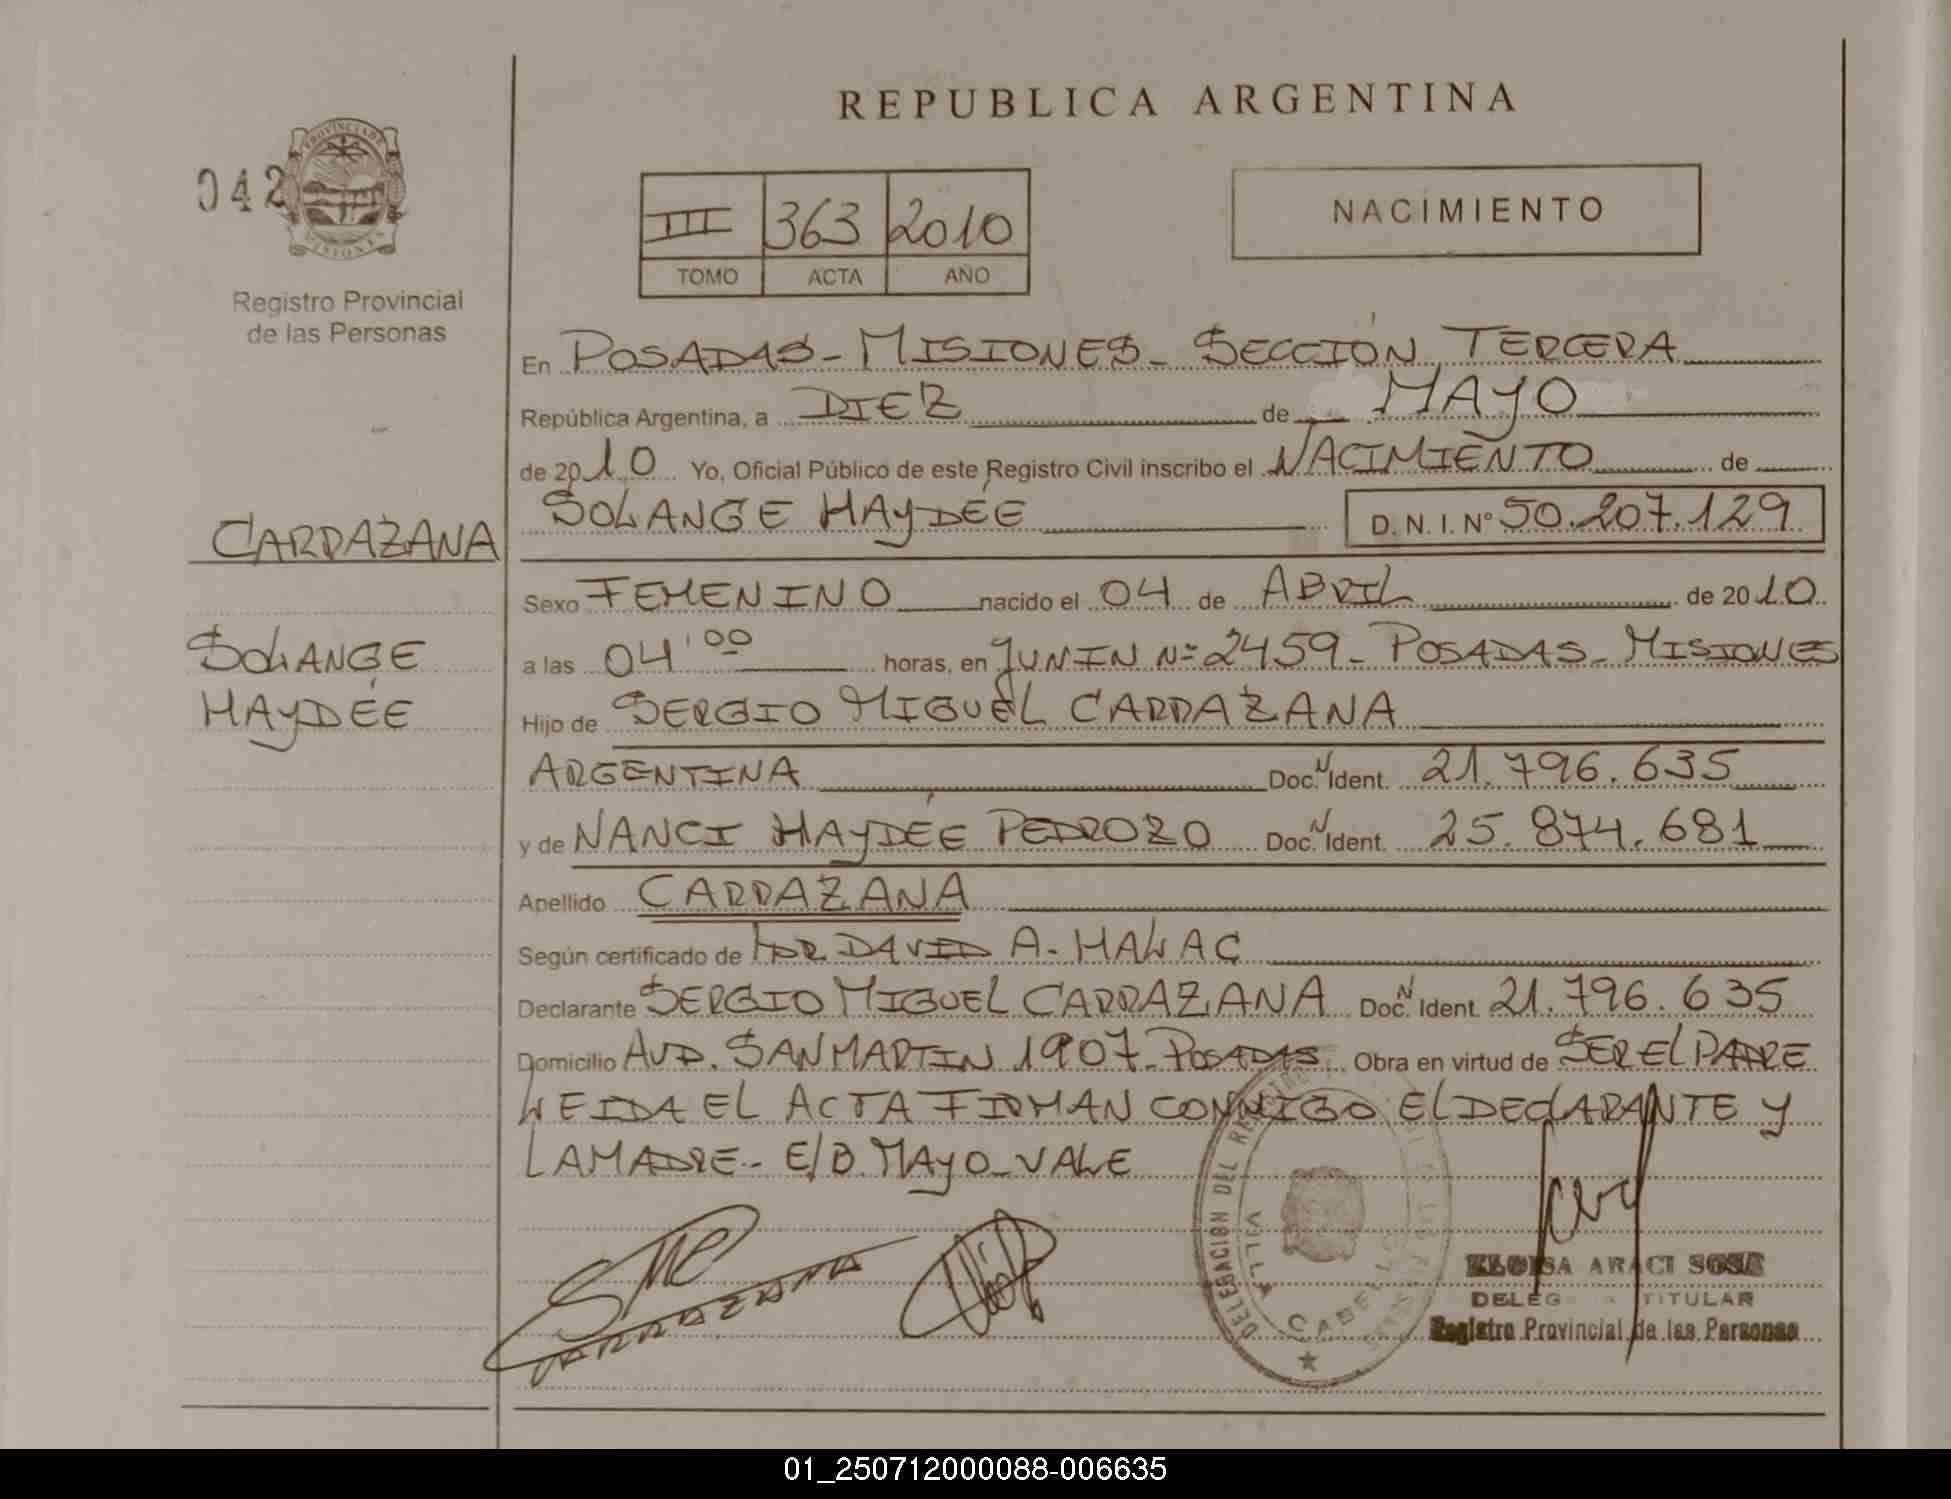 REPUBLICA ARGENTINA
042
PROVINCIA DE MISIONES
Registro Provincial
de las Personas
III 363 2010
TOMO ACTA AÑO
NACIMIENTO
En POSADAS - MISIONES - SECCIÓN TERCERA
República Argentina, a DIEZ de MAYO
de 2010 Yo, Oficial Público de este Registro Civil inscribo el NACIMIENTO de
SOLANGE HAYDÉE D. N. I. N° 50.207.129
CARRAZANA
SOLANGE
HAYDÉE
Sexo FEMENINO nacido el 04 de ABRIL de 2010
a las 04'00 horas, en JUNIN Nº 2459 - POSADAS - MISIONES
Hijo de SERGIO MIGUEL CARRAZANA
ARGENTINA Doc. N Ident. 21.796.635
y de NANCI HAYDÉE PEDROZO Doc. N Ident. 25.874.681
Apellido CARRAZANA
Según certificado de DR. DAVID A. MALAC
Declarante SERGIO MIGUEL CARRAZANA Doc. N Ident. 21.796.635
Domicilio AVD. SAN MARTIN 1907 - POSADAS Obra en virtud de SER EL PADRE
LEIDA EL ACTA FIRMAN CONMIGO EL DECLARANTE Y
LA MADRE - E/B. MAYO - VALE
SMC
CARRAZANA
DELEGACION DEL REGISTRO
VILLA CABELLO
ELOISA ARACI SOSA
DELEGADA TITULAR
Registro Provincial de las Personas
01_250712000088-006635